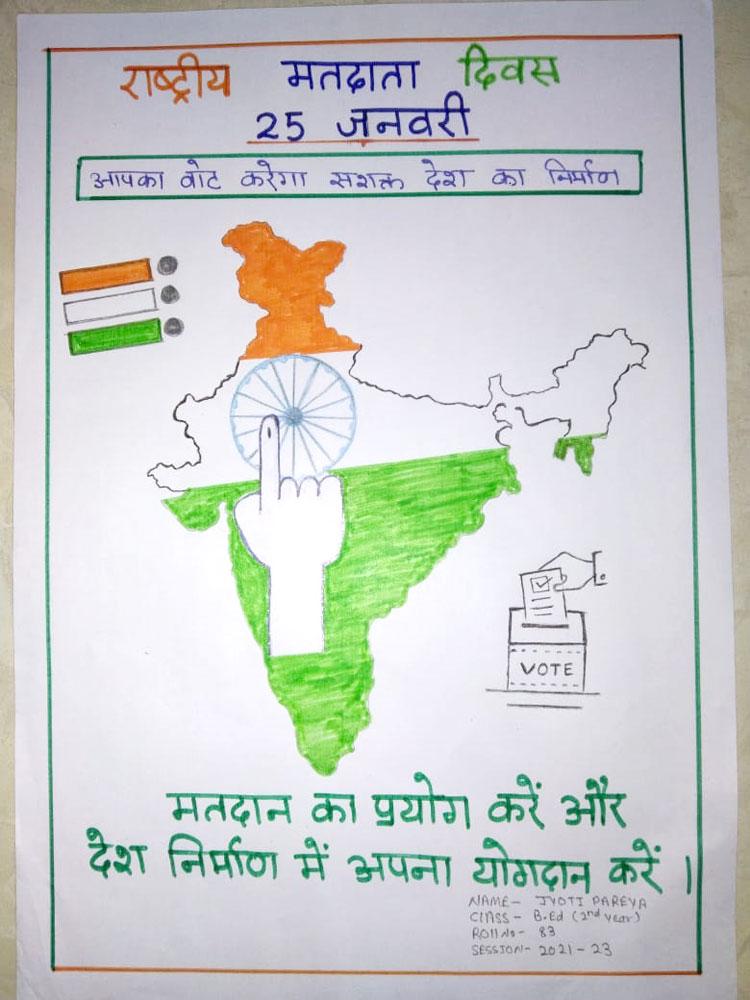 राष्ट्रीय मतदाता दिवस
25 जनवरी
आपका वोट करेगा सशक्त देश का निर्माण
VOTE
मतदान का प्रयोग करें और
देश निर्माण में अपना योगदान करें ।
NAME- JYOTI PAREVA
ClASS - B.Ed (2nd year)
Roll No- 83
SESSION- 2021-23